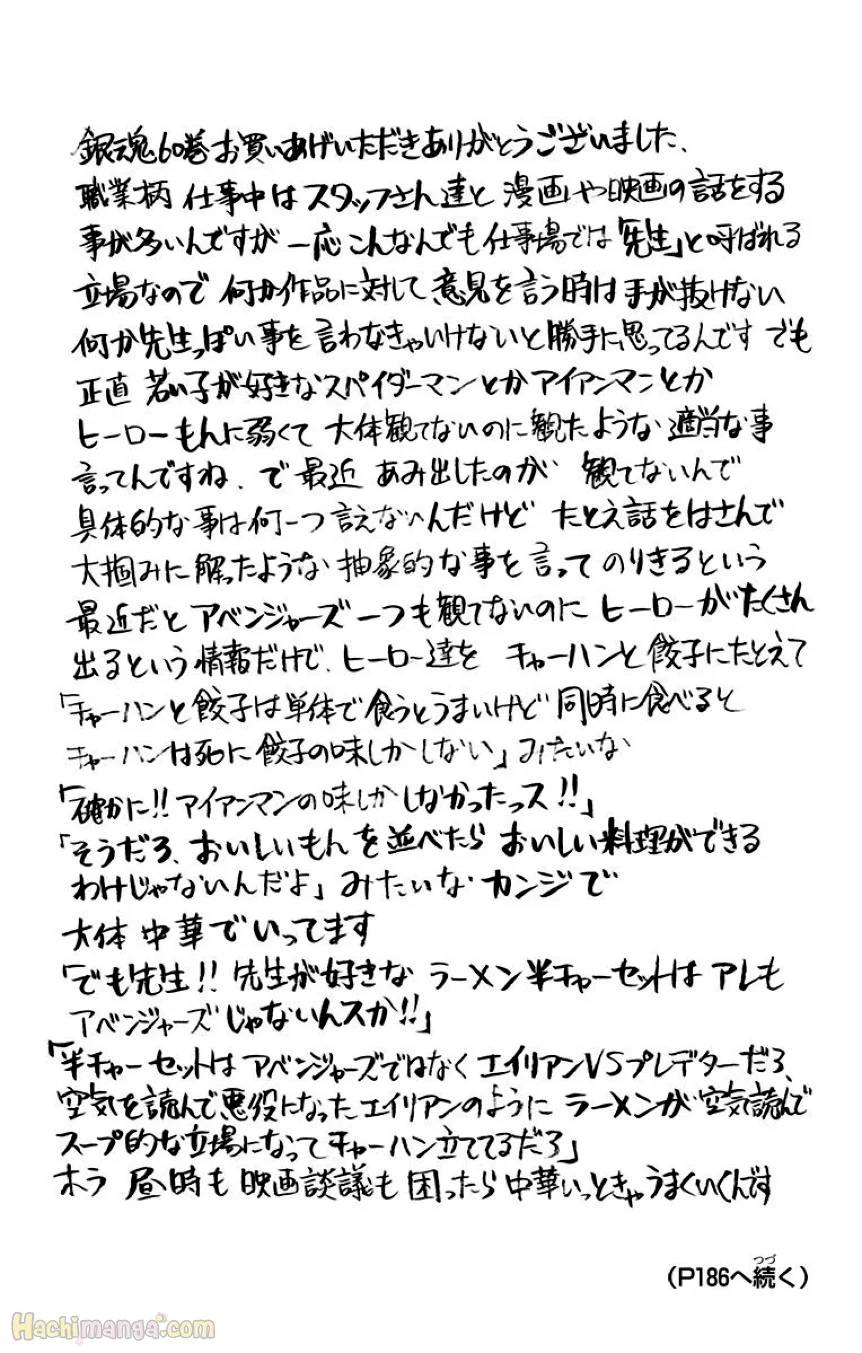 銀魂60巻お買いあげいただきありがとうございました、
職業柄 仕事中はスタッフさん達と 漫画や映画の話をする
事が多いんですが 一応こんなんでも仕事場では「先生」と呼ばれる
立場なので 何か作品に対して意見を言う時は手が抜けない
何か先生っぽい事を言わなきゃいけないと勝手に思ってるんです でも
正直 若い子が好きなスパイダーマンとかアイアンマンとか
ヒーローもんに弱くて 大体観てないのに観たような適当な事
言ってんですね、で最近 あみ出したのが 観てないんで
具体的な事は何一つ言えないんだけど たとえ話をはさんで
大掴みに解ったような抽象的な事を言って のりきるという
最近だとアベンジャーズ一つも観てないのに ヒーローがたくさん
出るという情報だけで、ヒーロー達を チャーハンと餃子にたとえて
「チャーハンと餃子は単体で食うとうまいけど同時に食べると
チャーハンは死に餃子の味しかしない」みたいな
「確かに!!アイアンマンの味しかしなかったっス!!」
「そうだろ、おいしいもんを並べたら おいしい料理ができる
わけじゃないんだよ」みたいな カンジで
大体 中華でいってます
「でも先生!! 先生が好きな ラーメン半チャーセットは アレも
アベンジャーズじゃないんスか!!」
「半チャーセットは アベンジャーズではなくエイリアンVSプレデターだろ、
空気を読んで悪役になったエイリアンのように ラーメンが空気読んで
スープ的な立場になってチャーハン立ててるだろ」
ホラ 昼時も 映画談議も 困ったら中華いっときゃうまくいくんです
(P186へ続く)
つづ
Hachimanga.com